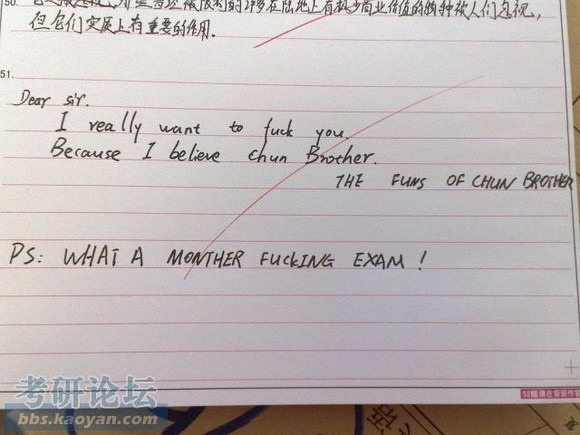 50.
的许多在陆地上有极少商业价值的物种被人们忽视,
但它们实质上有重要的作用.
51.
Dear sir.
I really want to fuck you.
Because I believe chun Brother.
THE FUNS OF CHUN BROTHER
PS: WHAT A MONTHER FUCKING EXAM !
考研论坛
bbs.kaoyan.com
52题请在背面作答